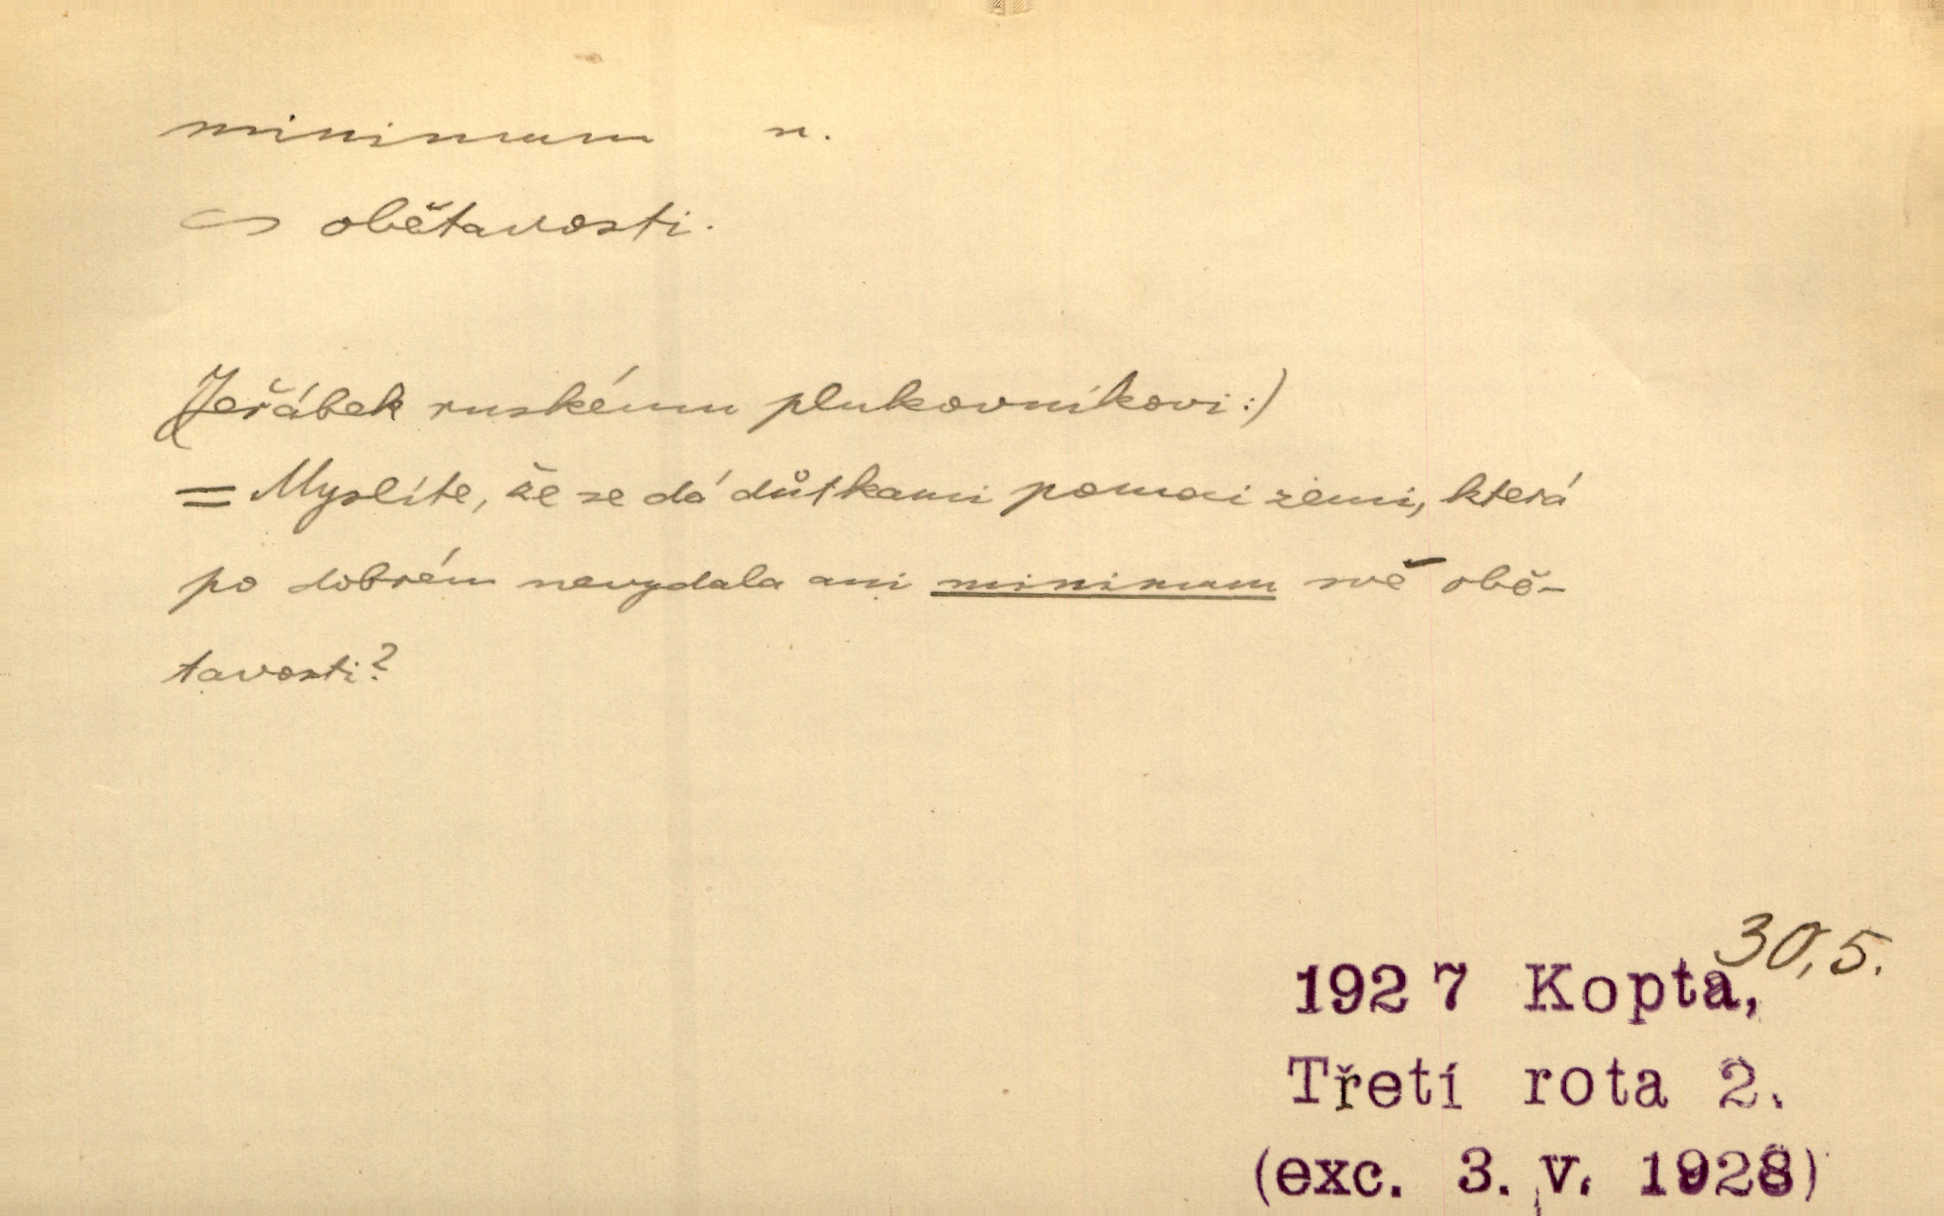 minimum n.
∽ obětavosti.
(Jeřábek ruskému plukovníkovi:)
= Myslíte, že se dá důtkami pomoci zemi, která
po dobrém nevydala ani minimum své obě-
tavosti?
30,5.
1927 Kopta,
Třetí rota 2.
(exc. 3. V. 1928)